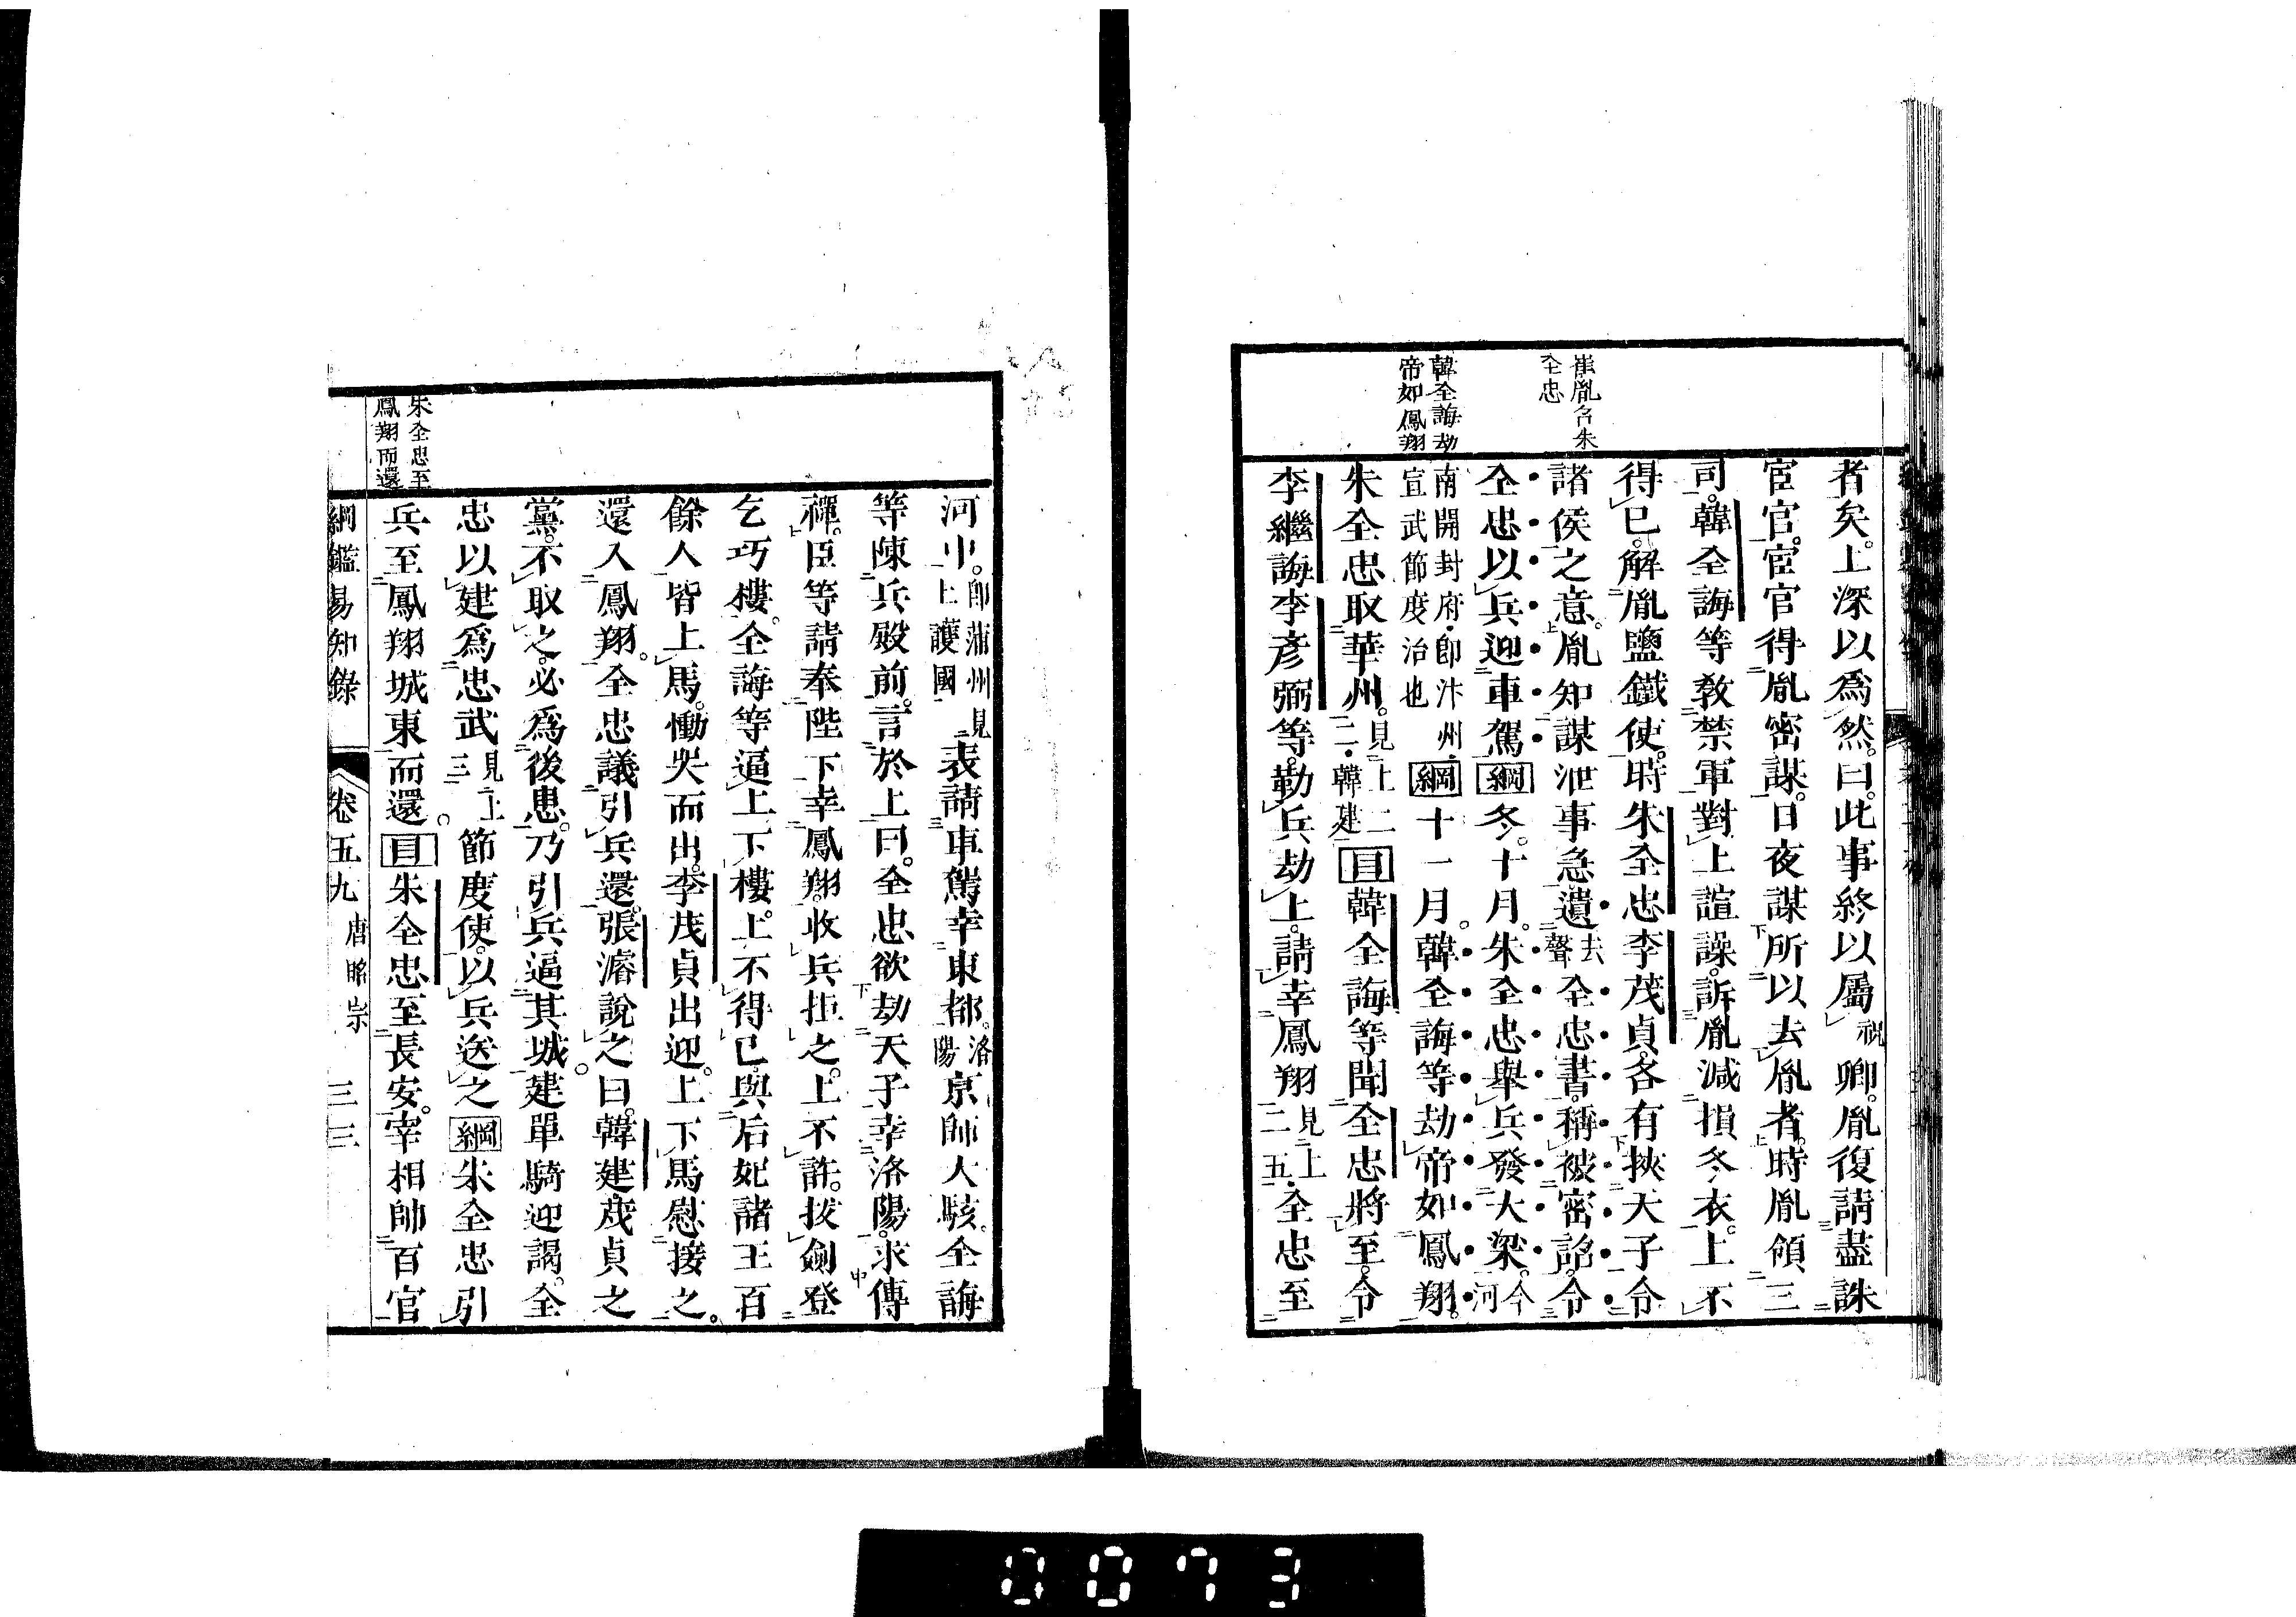 崔胤名朱
全忠
韓全誨劫
帝如鳳翔
者矣。上深以爲然。曰。此事終以屬祝卿。胤復請盡誅
宦官。宦官得胤密謀。日夜謀所以去胤者。時胤領三
司。韓全誨等敎禁軍對上諠譟。訴胤減損冬衣。上不
得已。解胤鹽鐵使。時朱全忠李茂貞。各有挾天子令
諸侯之意。胤知謀泄事急。遺去聲全忠書。稱被密詔。令
全忠以兵迎車駕綱冬。十月。朱全忠舉兵發大梁。今河
南開封府・卽汴州・宣武節度治也綱十一月。韓全誨等劫帝如鳳翔。
朱全忠取華州。見上二二・韓建目韓全誨等聞全忠將至。令
李繼誨李彥弼等。勒兵劫上。請幸鳳翔見上二五・全忠至
河中。卽蒲州見上護國表請車駕幸東都。洛陽京師大駭。全誨
等陳兵殿前。言於上曰。全忠欲劫天子幸洛陽。求傳
禪。臣等請奉陛下幸鳳翔。收兵拒之。上不許。拔劍登
乞巧樓。全誨等逼上下樓。上不得已。與后妃諸王百
餘人皆上馬。慟哭而出。李茂貞出迎。上下馬慰接之。
還入鳳翔。全忠議引兵還。張濬說之曰。韓建茂貞之
黨。不取之。必爲後患。乃引兵逼其城。建單騎迎謁。全
忠以建爲忠武見上三節度使。以兵送之綱朱全忠引
兵至鳳翔城東而還。目朱全忠至長安。宰相帥百官
朱全忠至
鳳翔而還
綱鑑易知錄 卷五九 唐昭宗 三三
0073